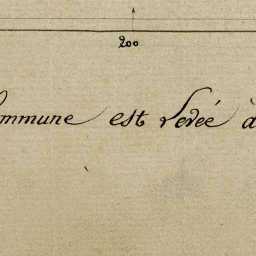 200
ommune est Levée à